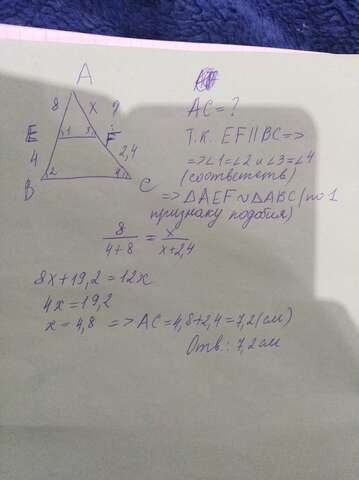 A
8 x ?
AC = ?
E 1 3 F
Т.К. EF||BC =>
4 2,4
=> ∠1=∠2 и ∠3=∠4
B 2 4 C
(соответств)
=> ΔAEF ~ ΔABC (по 1
признаку подобия)
8/(4+8) = x/(x+2,4)
8x+19,2=12x
4x=19,2
x=4,8 => AC=4,8+2,4=7,2(см)
Отв: 7,2 см